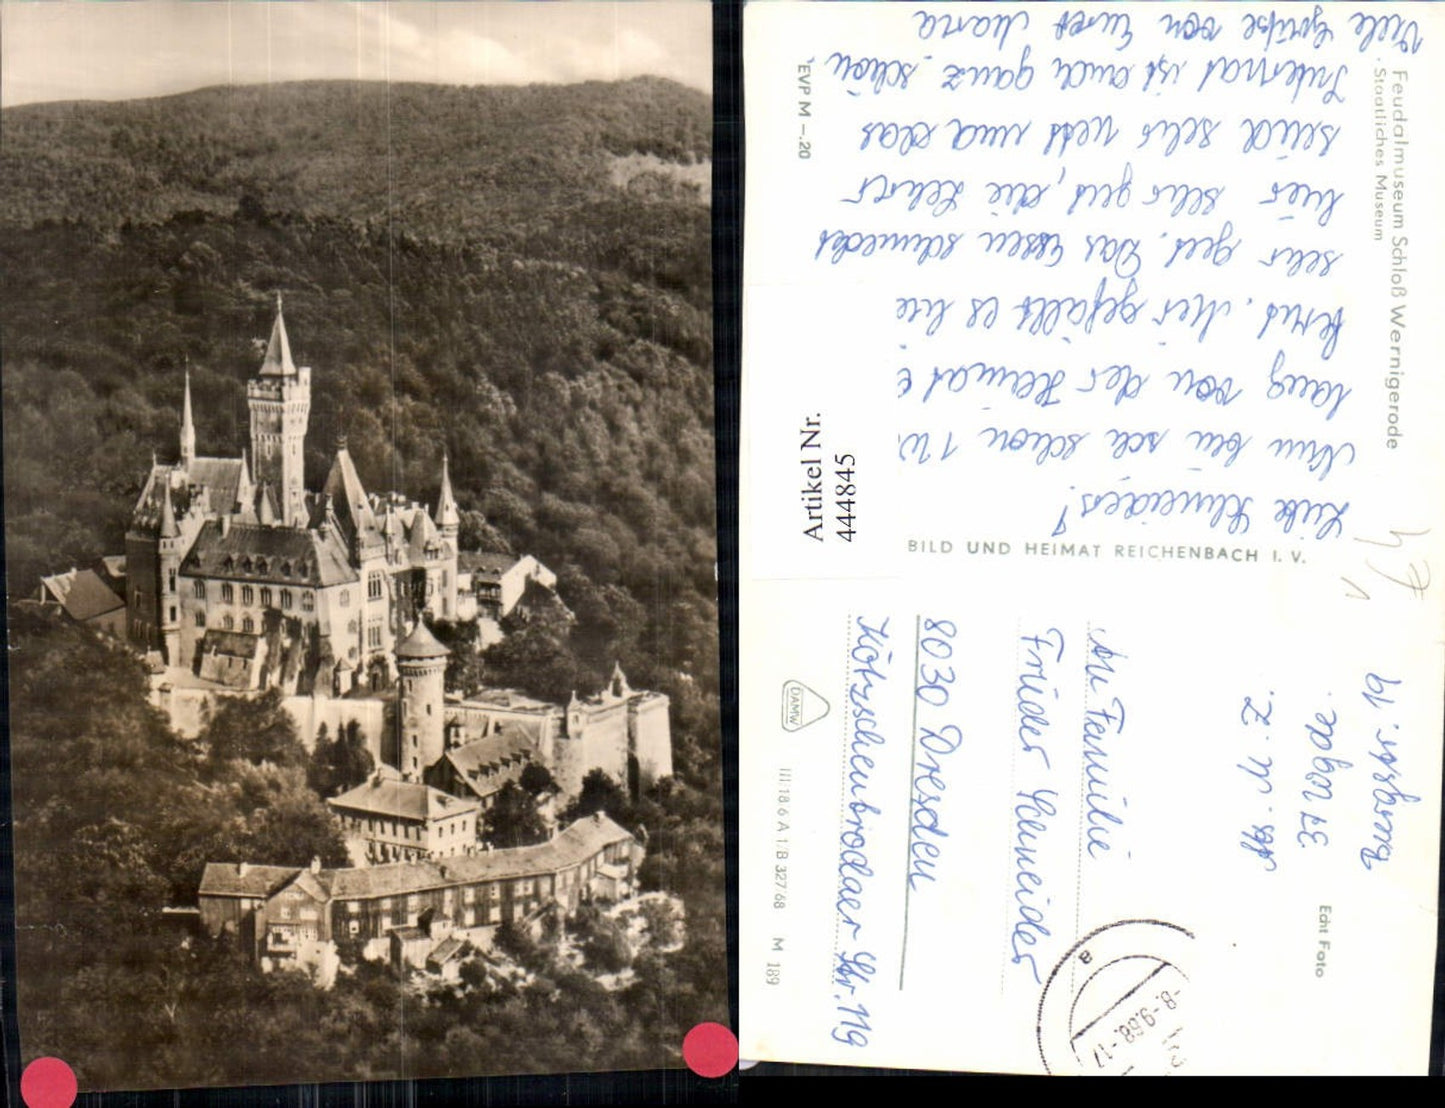 Feudalmuseum Schloß Wernigerode
· Staatliches Museum
Liebe Schneiders!
Nun bin ich schon 1 W
lang von der Heimat
fort. Mir gefällt es hie
sehr gut. Das Essen schmeckt
hier sehr gut, die Lehrer
sind sehr nett und das
Internat ist auch ganz schön
Viele Grüße von Eurer Maria
EVP M –.20
Artikel Nr.
444845
BILD UND HEIMAT REICHENBACH I. V.
Burgstr.
37 Wgde.
Abs. M. Z.
Echt Foto
-8.-9.68.-17
a
An Familie
Frieder Schneider
8030 Dresden
Kötzschenbrodaer Str. 119
DAMW
III 18 6 A 1/B 327 68 M 189